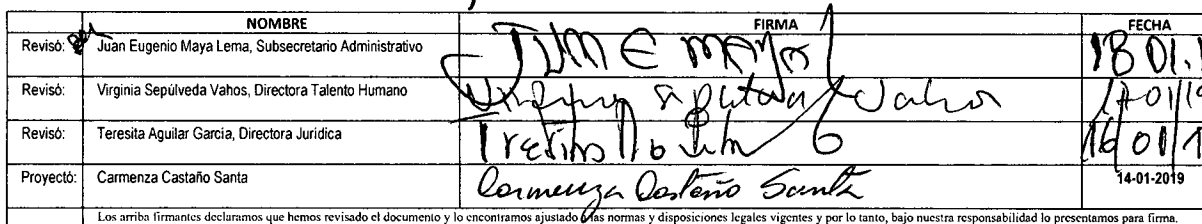 NOMBRE FIRMA FECHA
Revisó: Juan Eugenio Maya Lema, Subsecretario Administrativo 18 01.1
Revisó: Virginia Sepúlveda Vahos, Directora Talento Humano Vahos 17-01/19
Revisó: Teresita Aguilar García, Directora Jurídica 16/01/1
Proyectó: Carmenza Castaño Santa Carmenza Castaño Santa 14-01-2019
Los arriba firmantes declaramos que hemos revisado el documento y lo encontramos ajustado a las normas y disposiciones legales vigentes y por lo tanto, bajo nuestra responsabilidad lo presentamos para firma.